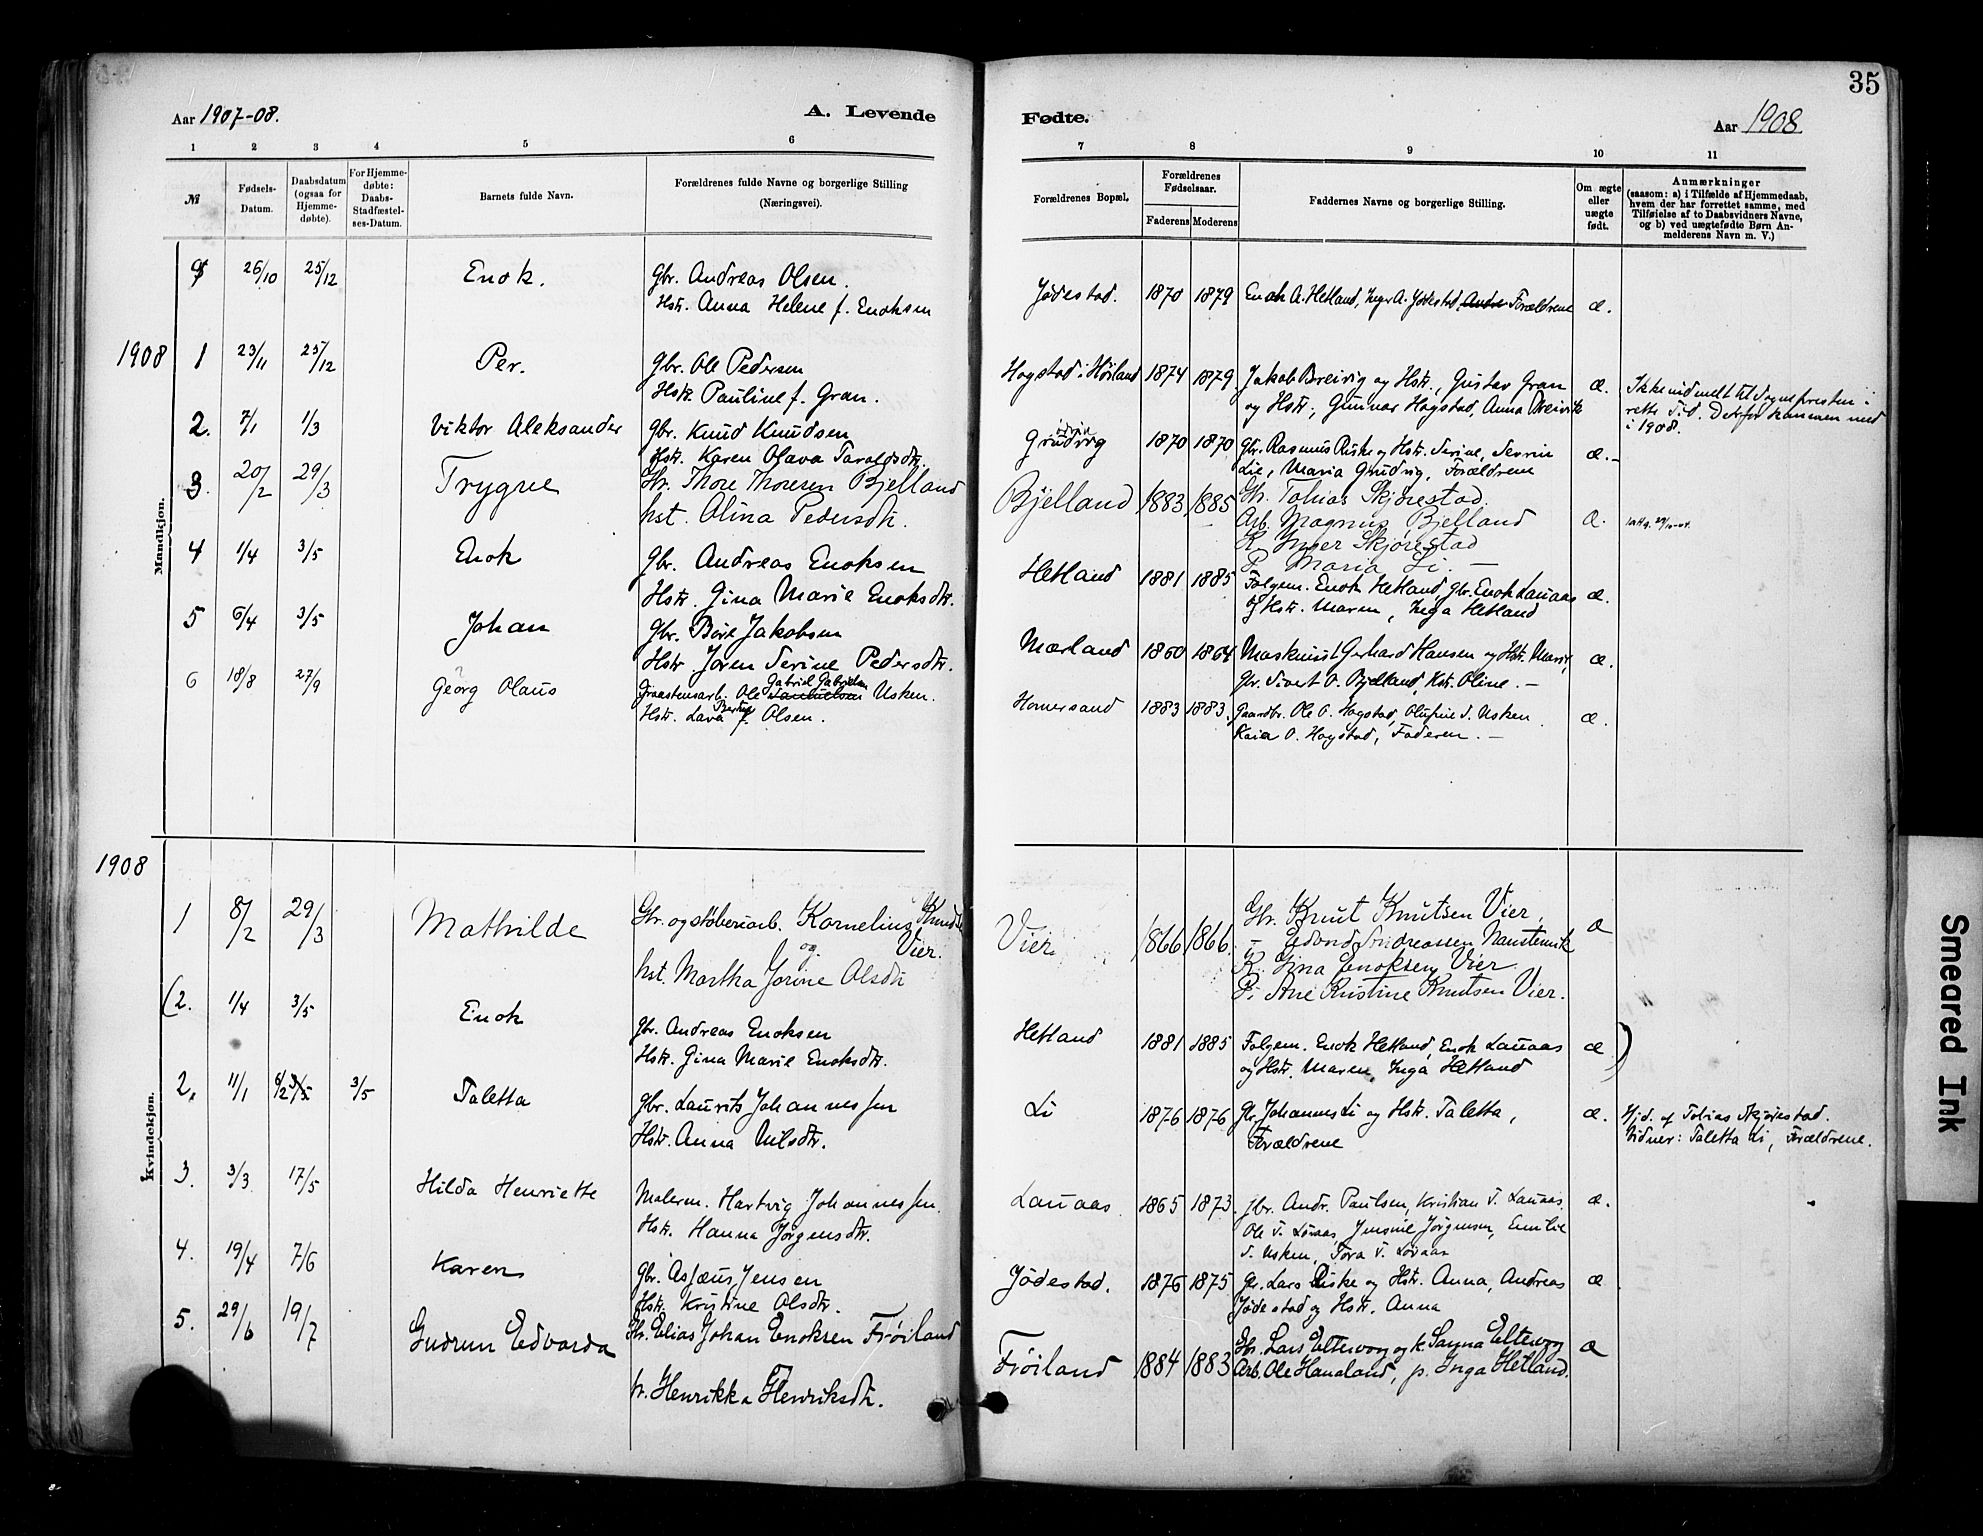 35
Aar 1907-08.
A. Levende
Fødte.
Aar 1908.
1 2 3 4 5 6
7 8 9 10 11
№
Fødsels-
Datum.
Daabsdatum
(ogsaa for
Hjemme-
døbte).
For Hjemme-
døbte:
Daabs-
Stadfæstel-
ses-Datum.
Barnets fulde Navn.
Forældrenes fulde Navne og borgerlige Stilling
(Næringsvei).
Forældrenes Bopæl.
Forældrenes
Fødselsaar.
Faderens Moderens
Faddernes Navne og borgerlige Stilling.
Om ægte
eller
uægte
født.
Anmærkninger
(saasom: a) i Tilfælde af Hjemmedaab,
hvem der har forrettet samme, med
Tilføielse af to Daabsvidners Navne,
og b) ved uægtefødte Børn An-
melderens Navn m. V.)
Mandkjøn.
9 26/10 25/12 Enok. Gbr. Andreas Olsen.
Hstr. Anna Helene f. Enoksen
Jødestad. 1870 1879 Enok A. Hetland, Inger A. Jødestad, Forældrene æ.
1908 1 23/11 25/12 Per. Gbr. Ole Pedersen
Hstr. Pauline f. Gran.
Hogstad i Høiland 1874 1879 Jakob Breivig og Hstr., Gustav Gran æ.
og Hstr., Gunnar Hogstad, Anna Breivik
Ikke indmeldt til Sognepresten i
rette Tid. Derfor kommen med
i 1908.
2. 7/1 1/3 Viktor Aleksander Gbr. Knud Knudsen
Hstr. Karen Olava Taraldsdtr.
Grudvig 1870 1870 Gbr. Rasmus Riske og Hstr. Serine, Severin æ.-
Lie, Maria Grudvig, Forældrene
3. 20/2 29/3 Trygve Gbr. Thore Thoresen Bjelland
hst. Olina Pedersdtr.
Bjelland 1883 1885 Gbr. Tobias Skjørestad.
Arb. Magnus Bjelland æ.
K. Inger Skjørestad
P. Maria Li. -
4 1/4 3/5 Enok Gbr. Andreas Enoksen
Hstr. Gina Marie Enoksdtr.
Hetland 1881 1885 Folgem. Enok Hetland, Gbr. Enok Lauaas æ.
og Hstr. Maren, Inga Hetland
5 6/4 3/5 Johan Gbr. Børe Jakobsen
Hstr. Joren Serine Pedersdtr.
Mæland 1860 1864 Maskinist Gerhard Hansen og Hstr. Marie, æ.
Gbr. Sivert O. Bjelland, Hstr. Oline. -
6 18/8 27/9 Georg Olaus Gabriel Gabrielsen
Graastensarb. Ole Samuelsen Usken.
Hstr. Lava Bertine f. Olsen.
Homersand 1883 1883. Gaardbr. Ole O. Hogstad, Olufine S. Usken æ.
Kaia O. Hogstad, Faderen. -
1908
Kvindekjøn.
1 8/2 29/3 Mathilde Gbr. og støberiarb. Kornelius Knuds.
og Vier.
hst. Martha Jorine Olsdtr
Vier 1866 1866. Gbr. Knut Knutsen Vier, æ
- Edvard Andreassen
K. Gina Enoksen Vier
P. Ane Kristine Knutsen Vier.
(2. 1/4 3/5 Enok Gbr. Andreas Enoksen
Hstr. Gina Marie Enoksdtr.
Hetland 1881 1885 Folgem. Enok Hetland, Enok Lauaas æ )
og Hstr. Maren, Inga Hetland
2. 11/1 6/2 3/5 3/5 Taletta Gbr. Laurits Johannessen
Hstr. Anna Nilsdtr.
Li 1876 1876 Gbr. Johannes Li og Hstr. Taletta, æ.
Forældrene
Hjd. af Tobias Skjørestad.
Vidner: Taletta Li, Forældrene.
3. 3/3 17/5 Hilda Henriette Malerm. Hartvig Johannessen.
Hstr. Hanna Jørgensdtr.
Lauaas 1865 1873. Gbr. Andr. Paulsen, Kristian T. Lauaas æ.
Ole T. Loraas, Jensine Jørgensen, Emilie
S. Usken, Tora T. Loraas
4. 19/4 7/6 Karen Gbr. Asjæus Jensen
Hstr. Kristine Olsdtr.
Jødestad. 1876 1875 Gbr. Lars Riske og Hstr. Anna, Andreas æ
Jødestad og Hstr. Anna
5. 29/6 19/7 Gudrun Edvarda Gbr. Elias Johan Enoksen Frøiland
p. Henrikka Henriksdtr.
Frøiland 1884 1883 Gbr. Lars Eltevog og k. Sanna Eltevog æ
Arb. Ole Hanaland, p. Inga Hetland.
Smeared Ink